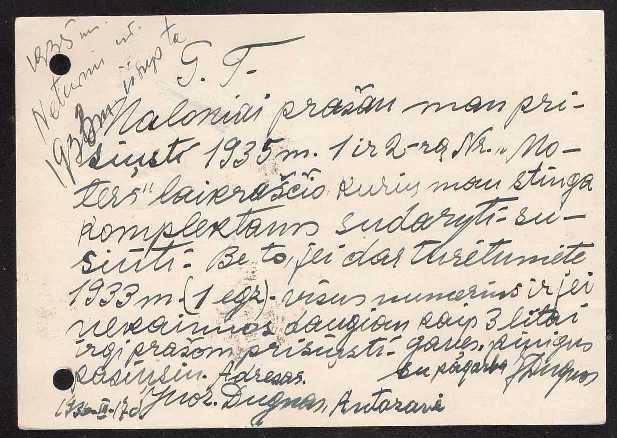 1935 m.
Neturim
1933 m.
G. T.
Maloniai prašau man pri-
siųsti 1935 m. 1 ir 2-rą Nr. „Mo-
ters" laikraščio, kurių man stinga
komplektams sudaryti- su-
siūti. Be to, jei dar turėtumėte
1933 m. (1 egz.) visus numerius ir jei
nekainuos daugiau kaip 3 litai
irgi prašom prisiųsti- gavęs pinigus
pasiųsiu. Adresas. su pagarba J Dugnas
Juoz. Dugnas, Antazavė